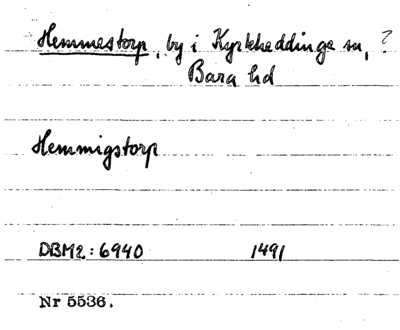 Hemmestorp, by i Kyrkheddinge sn, ?
Bara hd
Hemmigstorp
DBM2:6940 1491
Nr 5536.